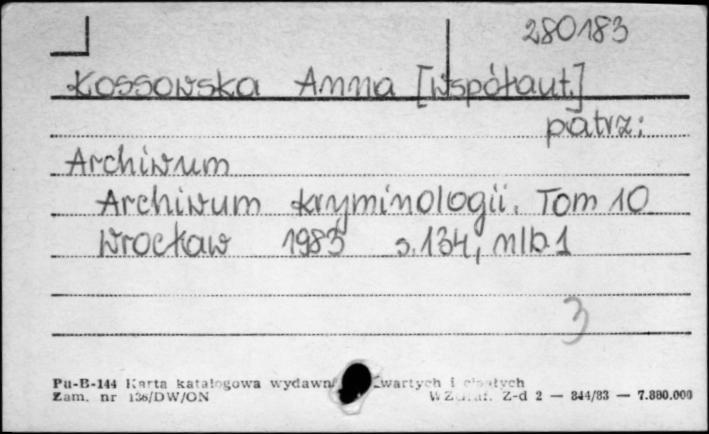 280183
Kossowska Anna [współaut.]
patrz:
Archiwum
Archiwum kryminologii. Tom 10
Wrocław 1983 s. 134, nlb. 1
3
Pu-B-144 Karta katalogowa wydawn zwartych i ciągłych
Zam. nr 136/DW/ON WZGraf. Z-d 2 — 344/83 — 7.880.000